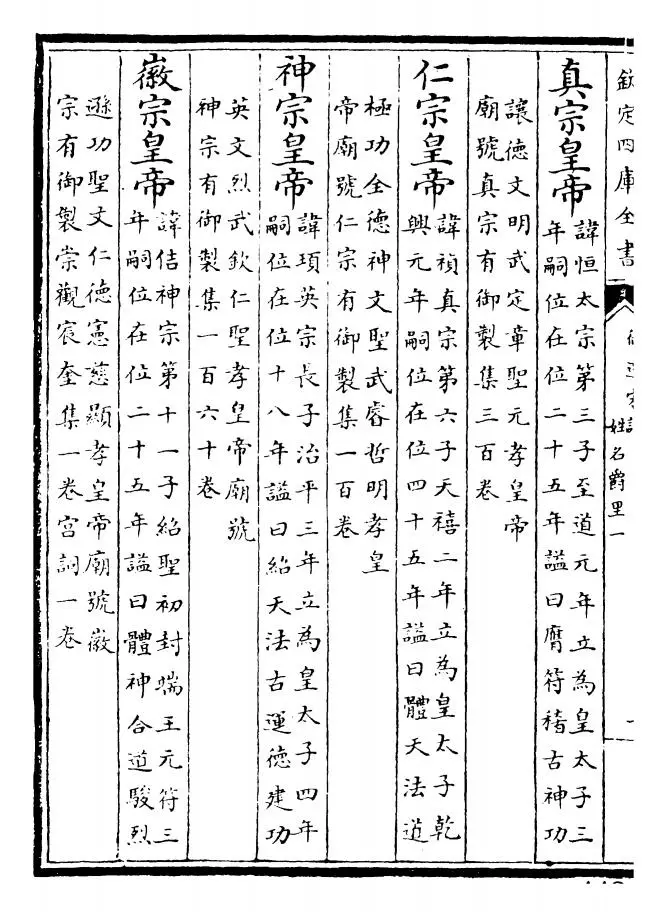 欽定四庫全書
姓名爵里一
真宗皇帝
諱恒太宗第三子至道元年立為皇太子三
年嗣位在位二十五年謚曰膺符稽古神功
讓德文明武定章聖元孝皇帝
廟號真宗有御製集三百卷
仁宗皇帝
諱禎真宗第六子天禧二年立為皇太子乾
興元年嗣位在位四十五年謚曰體天法道
極功全德神文聖武睿哲明孝皇
帝廟號仁宗有御製集一百卷
神宗皇帝
諱頊英宗長子治平三年立為皇太子四年
嗣位在位十八年謚曰紹天法古運德建功
英文烈武欽仁聖孝皇帝廟號
神宗有御製集一百六十卷
徽宗皇帝
諱佶神宗第十一子紹聖初封端王元符三
年嗣位在位二十五年謚曰體神合道駿烈
遜功聖文仁德憲慈顯孝皇帝廟號徽
宗有御製崇觀宸奎集一卷宫詞一卷